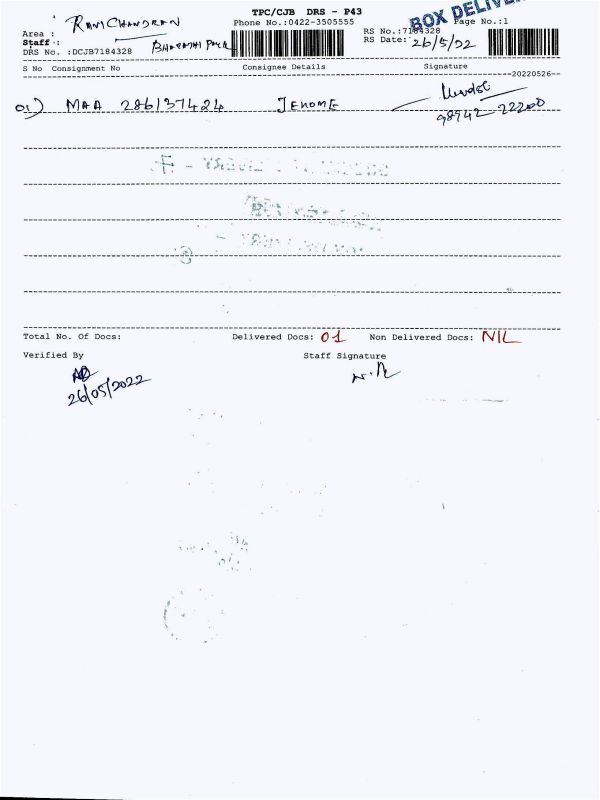 RAVICHANDRAN
TPC/CJB DRS - P43
BOX DELIVE
Area :
Phone No.:0422-3505555
RS No.:7184328
Page No.:1
Staff :
RS Date: 26/5/22
DRS No. :DCJB7184328
S No Consignment No Consignee Details Signature
20220526
01) MAA 286137424 JEROME
98942 22200
Total No. Of Docs: Delivered Docs: 01 Non Delivered Docs: NIL
Verified By Staff Signature
26/05/2022